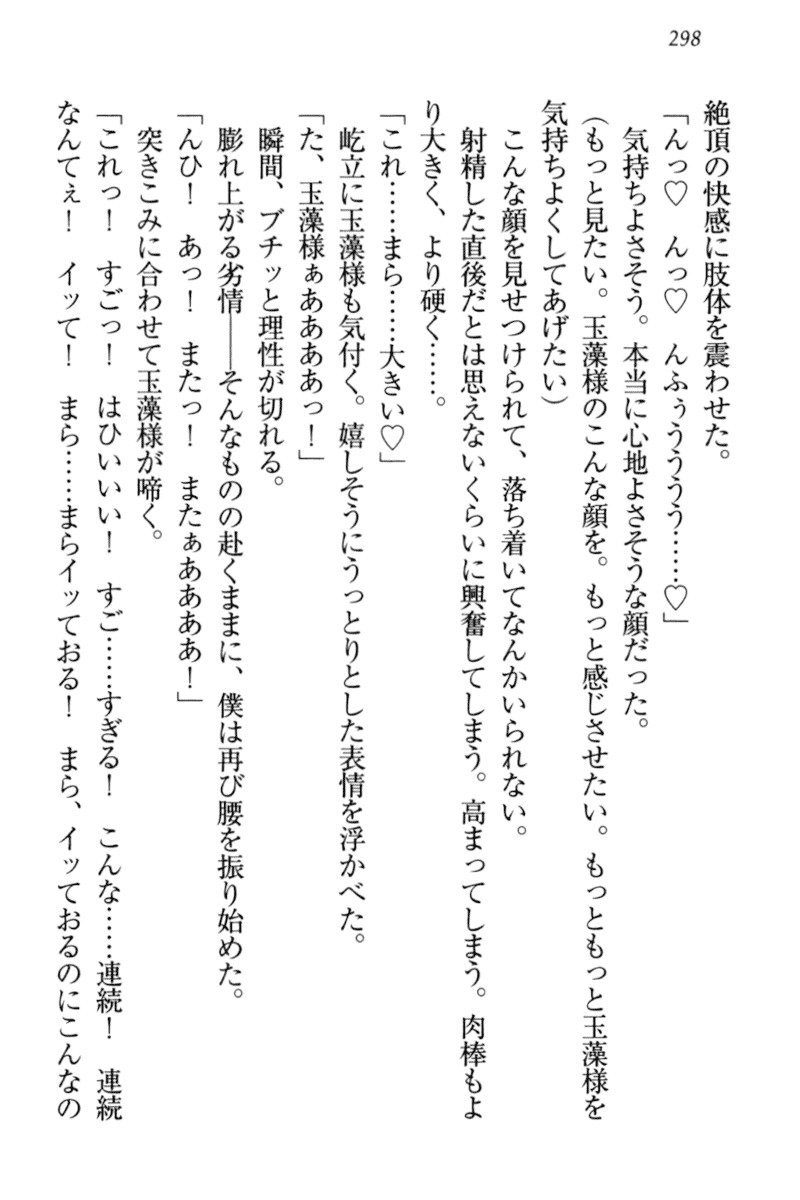 298
絶頂の快感に肢体を震わせた。
「んっ♡　んっ♡　んふぅうううう……♡」
　気持ちよさそう。本当に心地よさそうな顔だった。
（もっと見たい。玉藻様のこんな顔を。もっと感じさせたい。もっともっと玉藻様を
気持ちよくしてあげたい）
　こんな顔を見せつけられて、落ち着いてなんかいられない。
　射精した直後だとは思えないくらいに興奮してしまう。高まってしまう。肉棒もよ
り大きく、より硬く……。
「これ……まら……大きい♡」
　屹立に玉藻様も気付く。嬉しそうにうっとりとした表情を浮かべた。
「た、玉藻様ぁああああっ！」
　瞬間、ブチッと理性が切れる。
　膨れ上がる劣情――そんなものの赴くままに、僕は再び腰を振り始めた。
「んひ！　あっ！　またっ！　またぁああああ！」
　突きこみに合わせて玉藻様が啼く。
「これっ！　すごっ！　はひいいい！　すご……すぎる！　こんな……連続！　連続
なんてぇ！　イッて！　まら……まらイッておる！　まら、イッておるのにこんなの